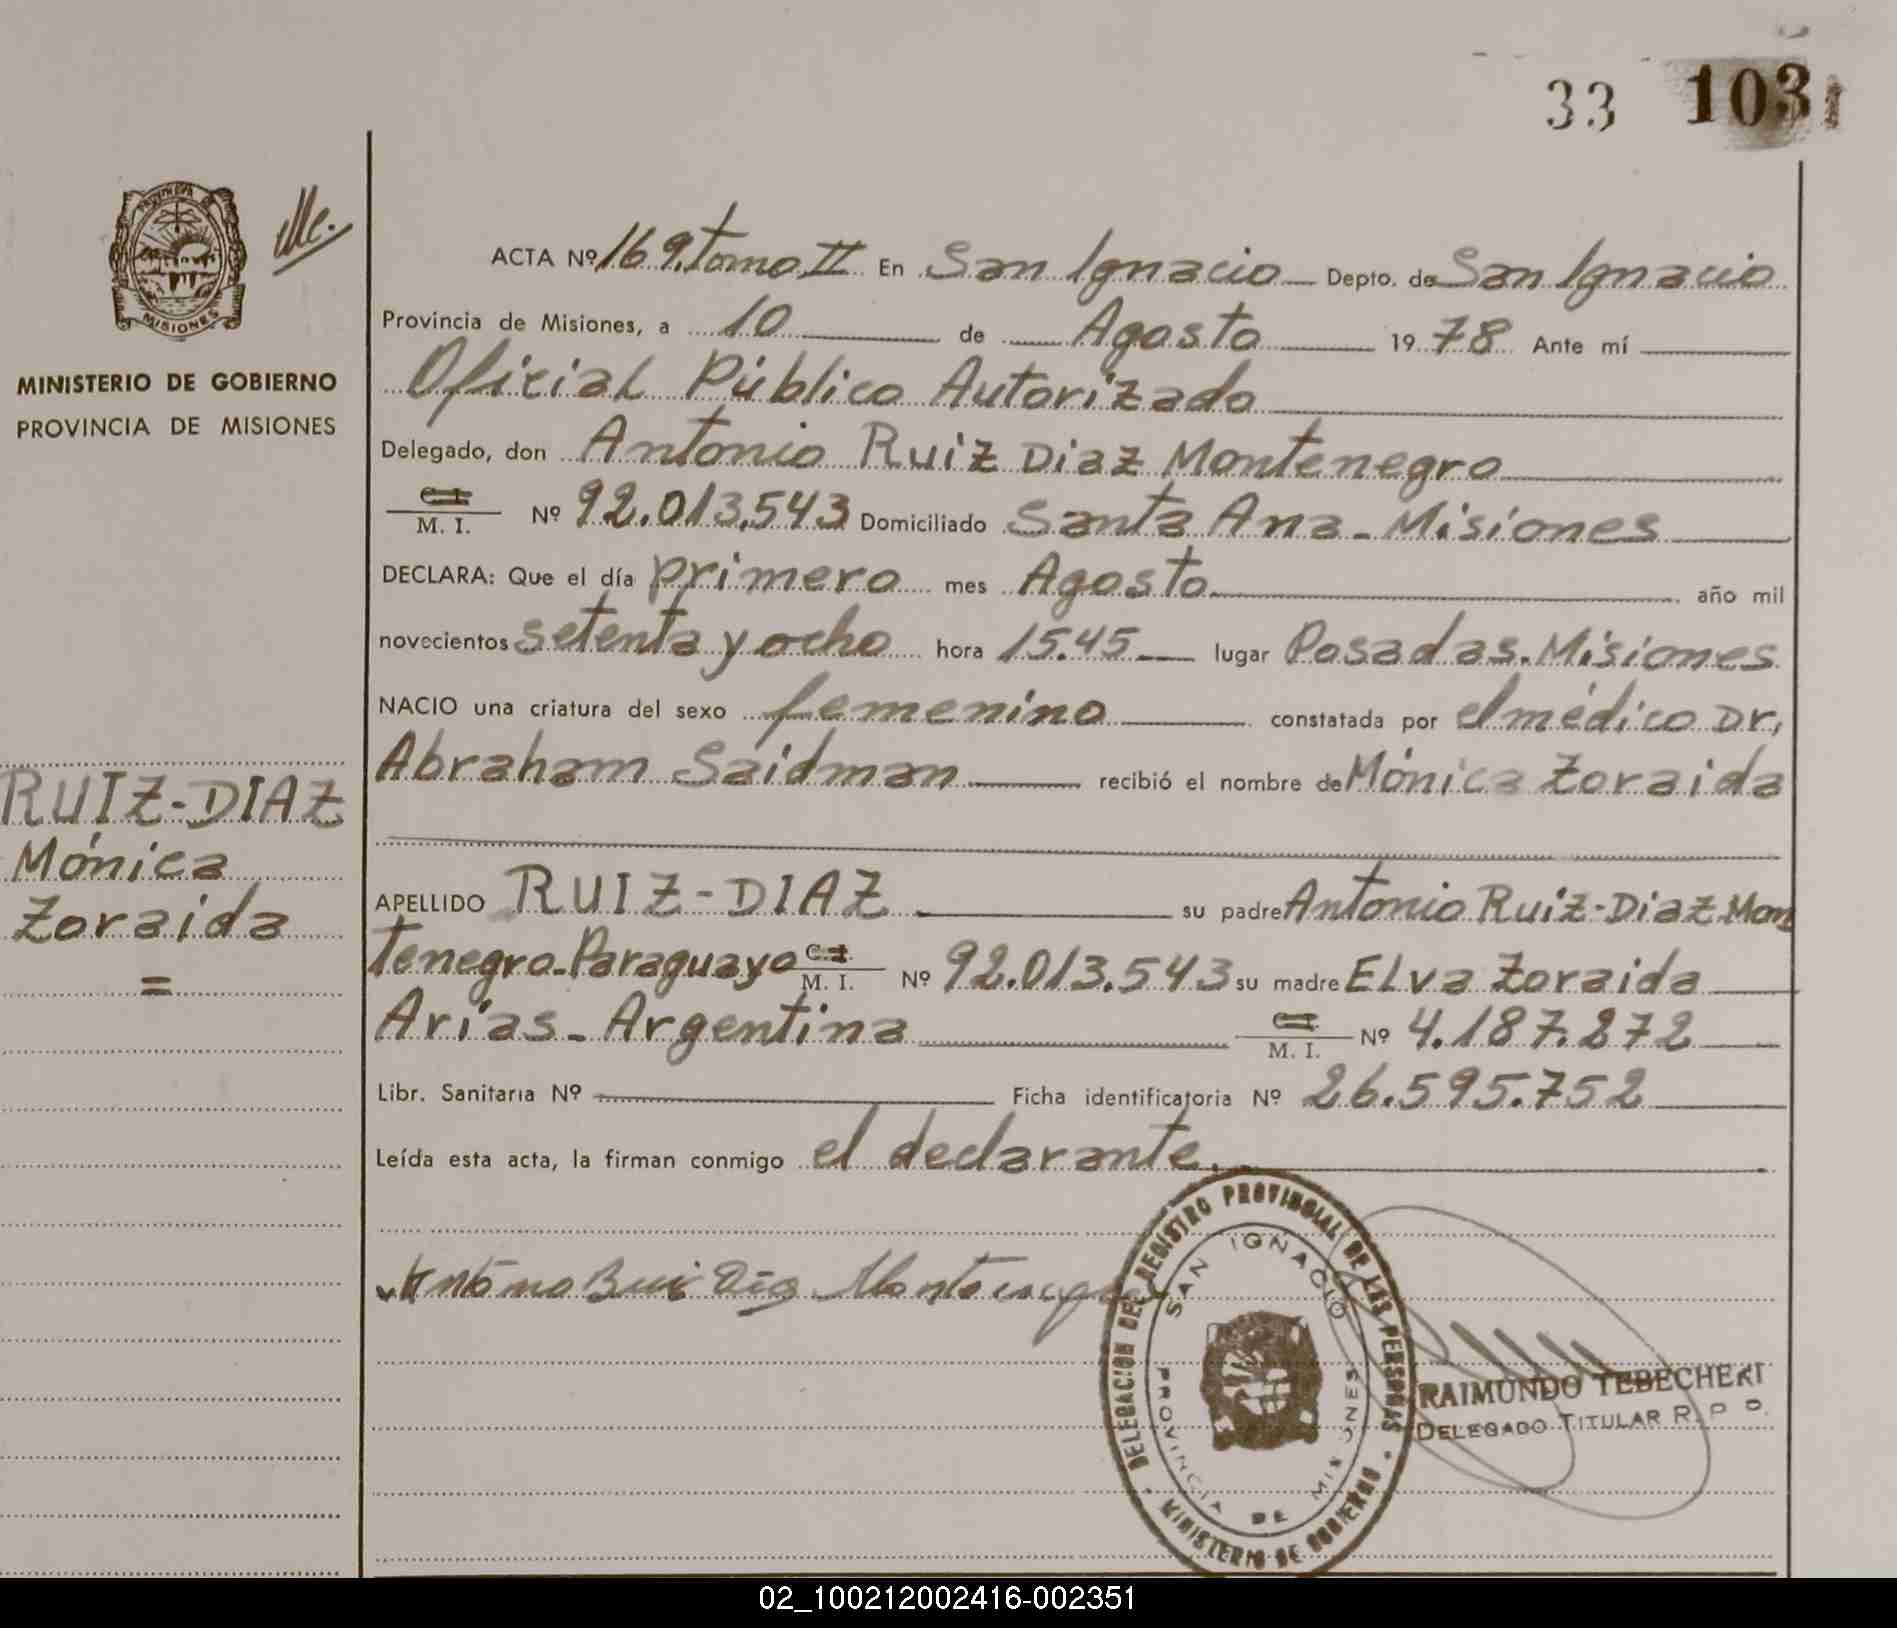 33 103
PROVINCIA DE
MISIONES
MINISTERIO DE GOBIERNO
PROVINCIA DE MISIONES
RUIZ-DIAZ
Mónica
Zoraida
=
ACTA Nº 169.tomo II En San Ignacio Depto. de San Ignacio
Provincia de Misiones, a 10 de Agosto 1978 Ante mí
Oficial Público Autorizado
Delegado, don Antonio Ruiz Diaz Montenegro
C. I.
M. I. Nº 92.013.543 Domiciliado Santa Ana - Misiones
DECLARA: Que el día primero mes Agosto año mil
novecientos setenta y ocho hora 15.45 lugar Posadas. Misiones
NACIO una criatura del sexo femenino constatada por el médico Dr,
Abraham Saidman recibió el nombre de Mónica Zoraida
APELLIDO RUIZ-DIAZ su padre Antonio Ruiz-Diaz Mon
tenegro-Paraguayo C. I. M. I. Nº 92.013.543 su madre Elva Zoraida
Arias - Argentina C. I. M. I. Nº 4.187.272
Libr. Sanitaria Nº Ficha identificatoria Nº 26.595.752
Leída esta acta, la firman conmigo el declarante.
Antonio Rui Diaz Montenegro
DELEGACION DEL REGISTRO PROVINCIAL DE LAS PERSONAS
MINISTERIO DE GOBIERNO
SAN IGNACIO
PROVINCIA DE MISIONES
RAIMUNDO TEBECHERI
DELEGADO TITULAR R. P. P.
02_100212002416-002351